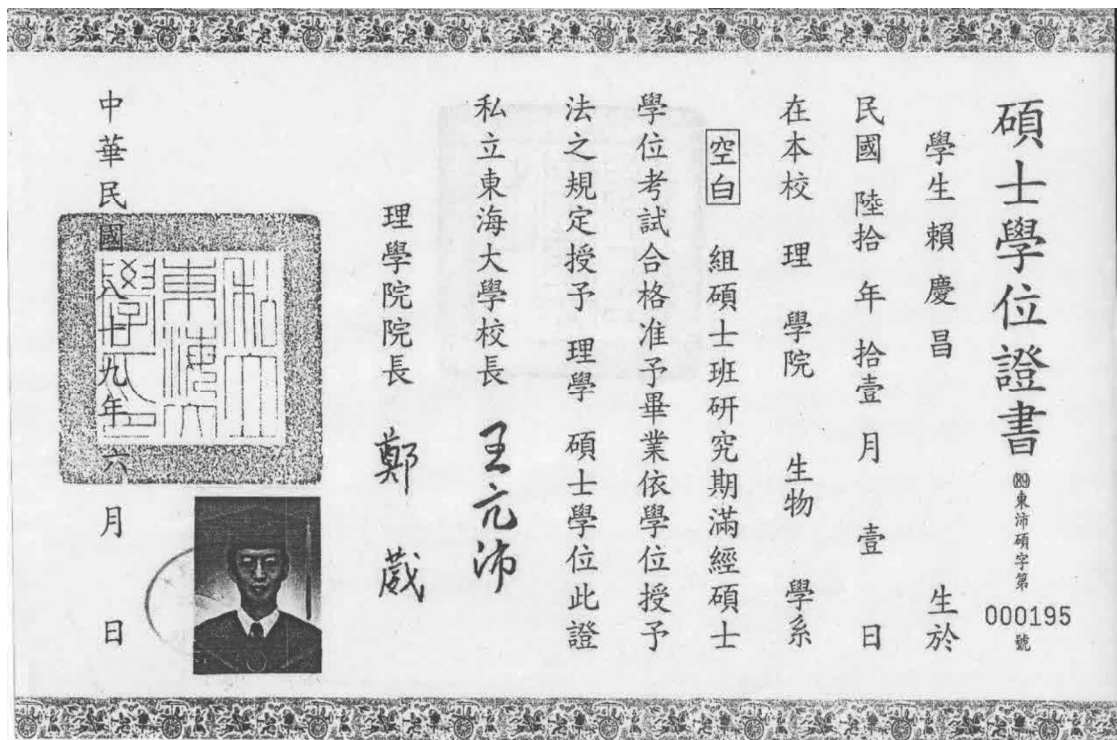 碩士學位證書
(89)東沛碩字第
000195
號
學生賴慶昌 生於
民國 陸拾 年 拾壹 月 壹 日
在本校 理 學院 生物 學系
空白 組碩士班研究期滿經碩士
學位考試合格准予畢業依學位授予
法之規定授予 理學 碩士學位此證
私立東海大學校長 王亢沛
理學院院長 鄭 戲
中華民國八十九年六月 日
私立東海大學之印